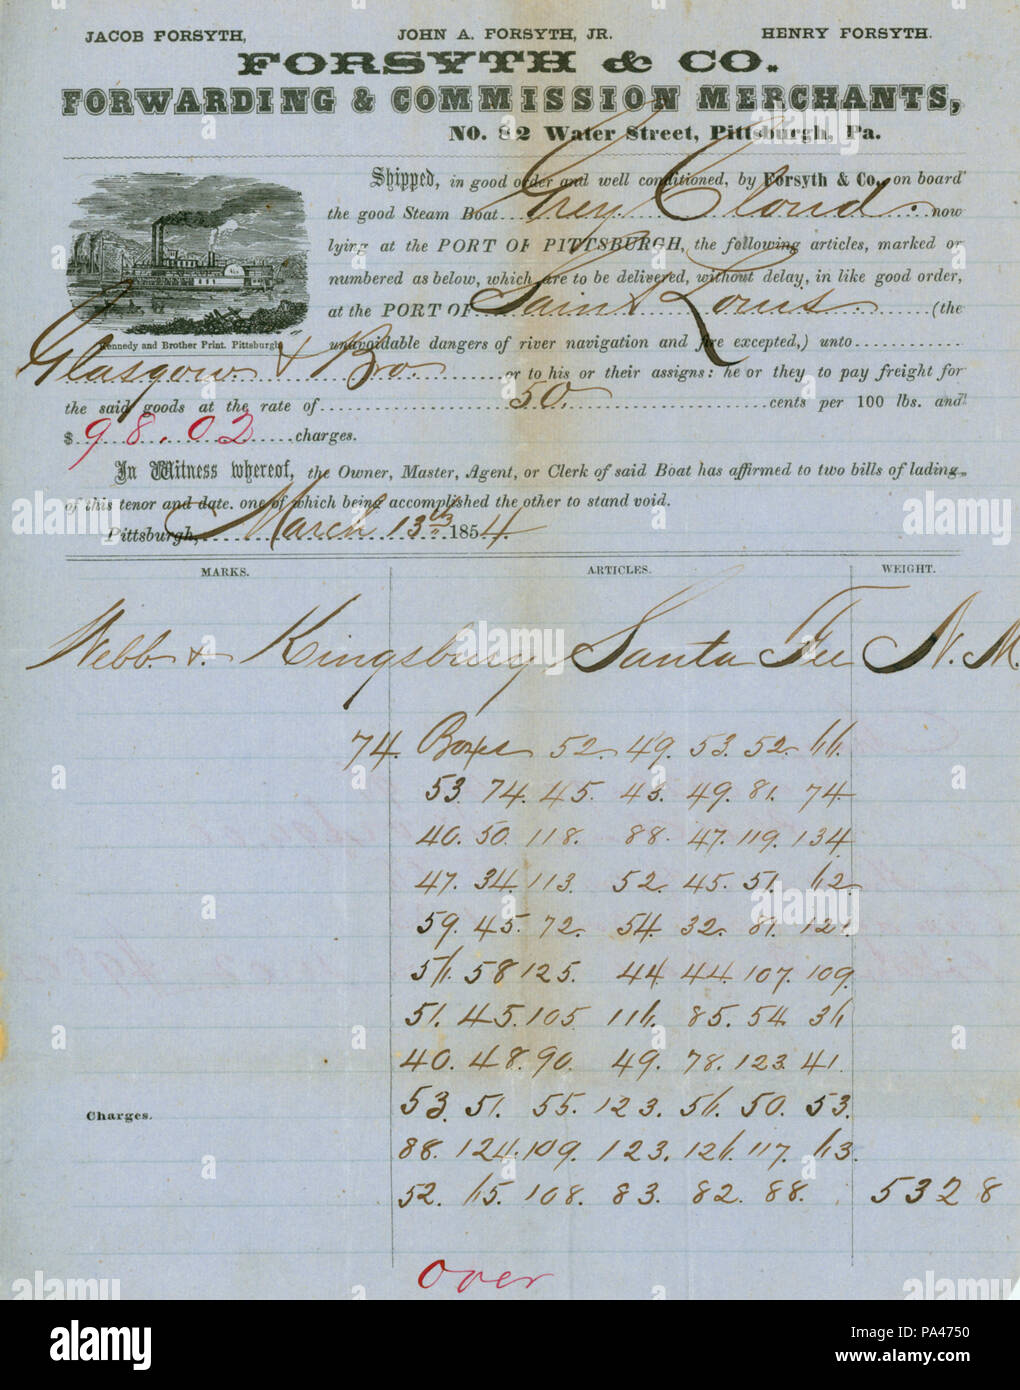 JACOB FORSYTH, JOHN A. FORSYTH, JR. HENRY FORSYTH.
FORSYTH & CO.
FORWARDING & COMMISSION MERCHANTS,
NO. 82 Water Street, Pittsburgh, Pa.
Shipped, in good order and well conditioned, by Forsyth & Co., on board
the good Steam Boat Grey Cloud. now
lying at the PORT OF PITTSBURGH, the following articles, marked or
numbered as below, which are to be delivered, without delay, in like good order,
at the PORT OF Saint Louis (the
Kennedy and Brother Print. Pittsburgh
unavoidable dangers of river navigation and fire excepted,) unto
Glasgow & Bro. or to his or their assigns: he or they to pay freight for
the said goods at the rate of 50. cents per 100 lbs. and
$ 98.02 charges.
In Witness whereof, the Owner, Master, Agent, or Clerk of said Boat has affirmed to two bills of lading,
of this tenor and date. one of which being accomplished the other to stand void.
Pittsburgh, March 13th 1854.
MARKS. ARTICLES. WEIGHT.
Webb & Kingsbury Santa Fee N. M.
74. Boxes 52. 49. 53. 52. 66.
53. 74. 45. 45. 49. 81. 74.
40. 50. 118. 88. 47. 119. 134
47. 34. 113. 52. 45. 51. 62.
59. 45. 72. 54. 32. 81. 121.
56. 58 125. 44. 44. 107. 109.
51. 45. 105 116. 85. 54 36
40. 48. 90. 49. 78. 123. 41.
Charges. 53. 51. 55. 123. 56. 50. 53.
88. 124. 109. 123. 126. 117. 63.
52. 65. 108. 83. 82. 88. 5328
over
alamy
Image ID: PA4750
www.alamy.com